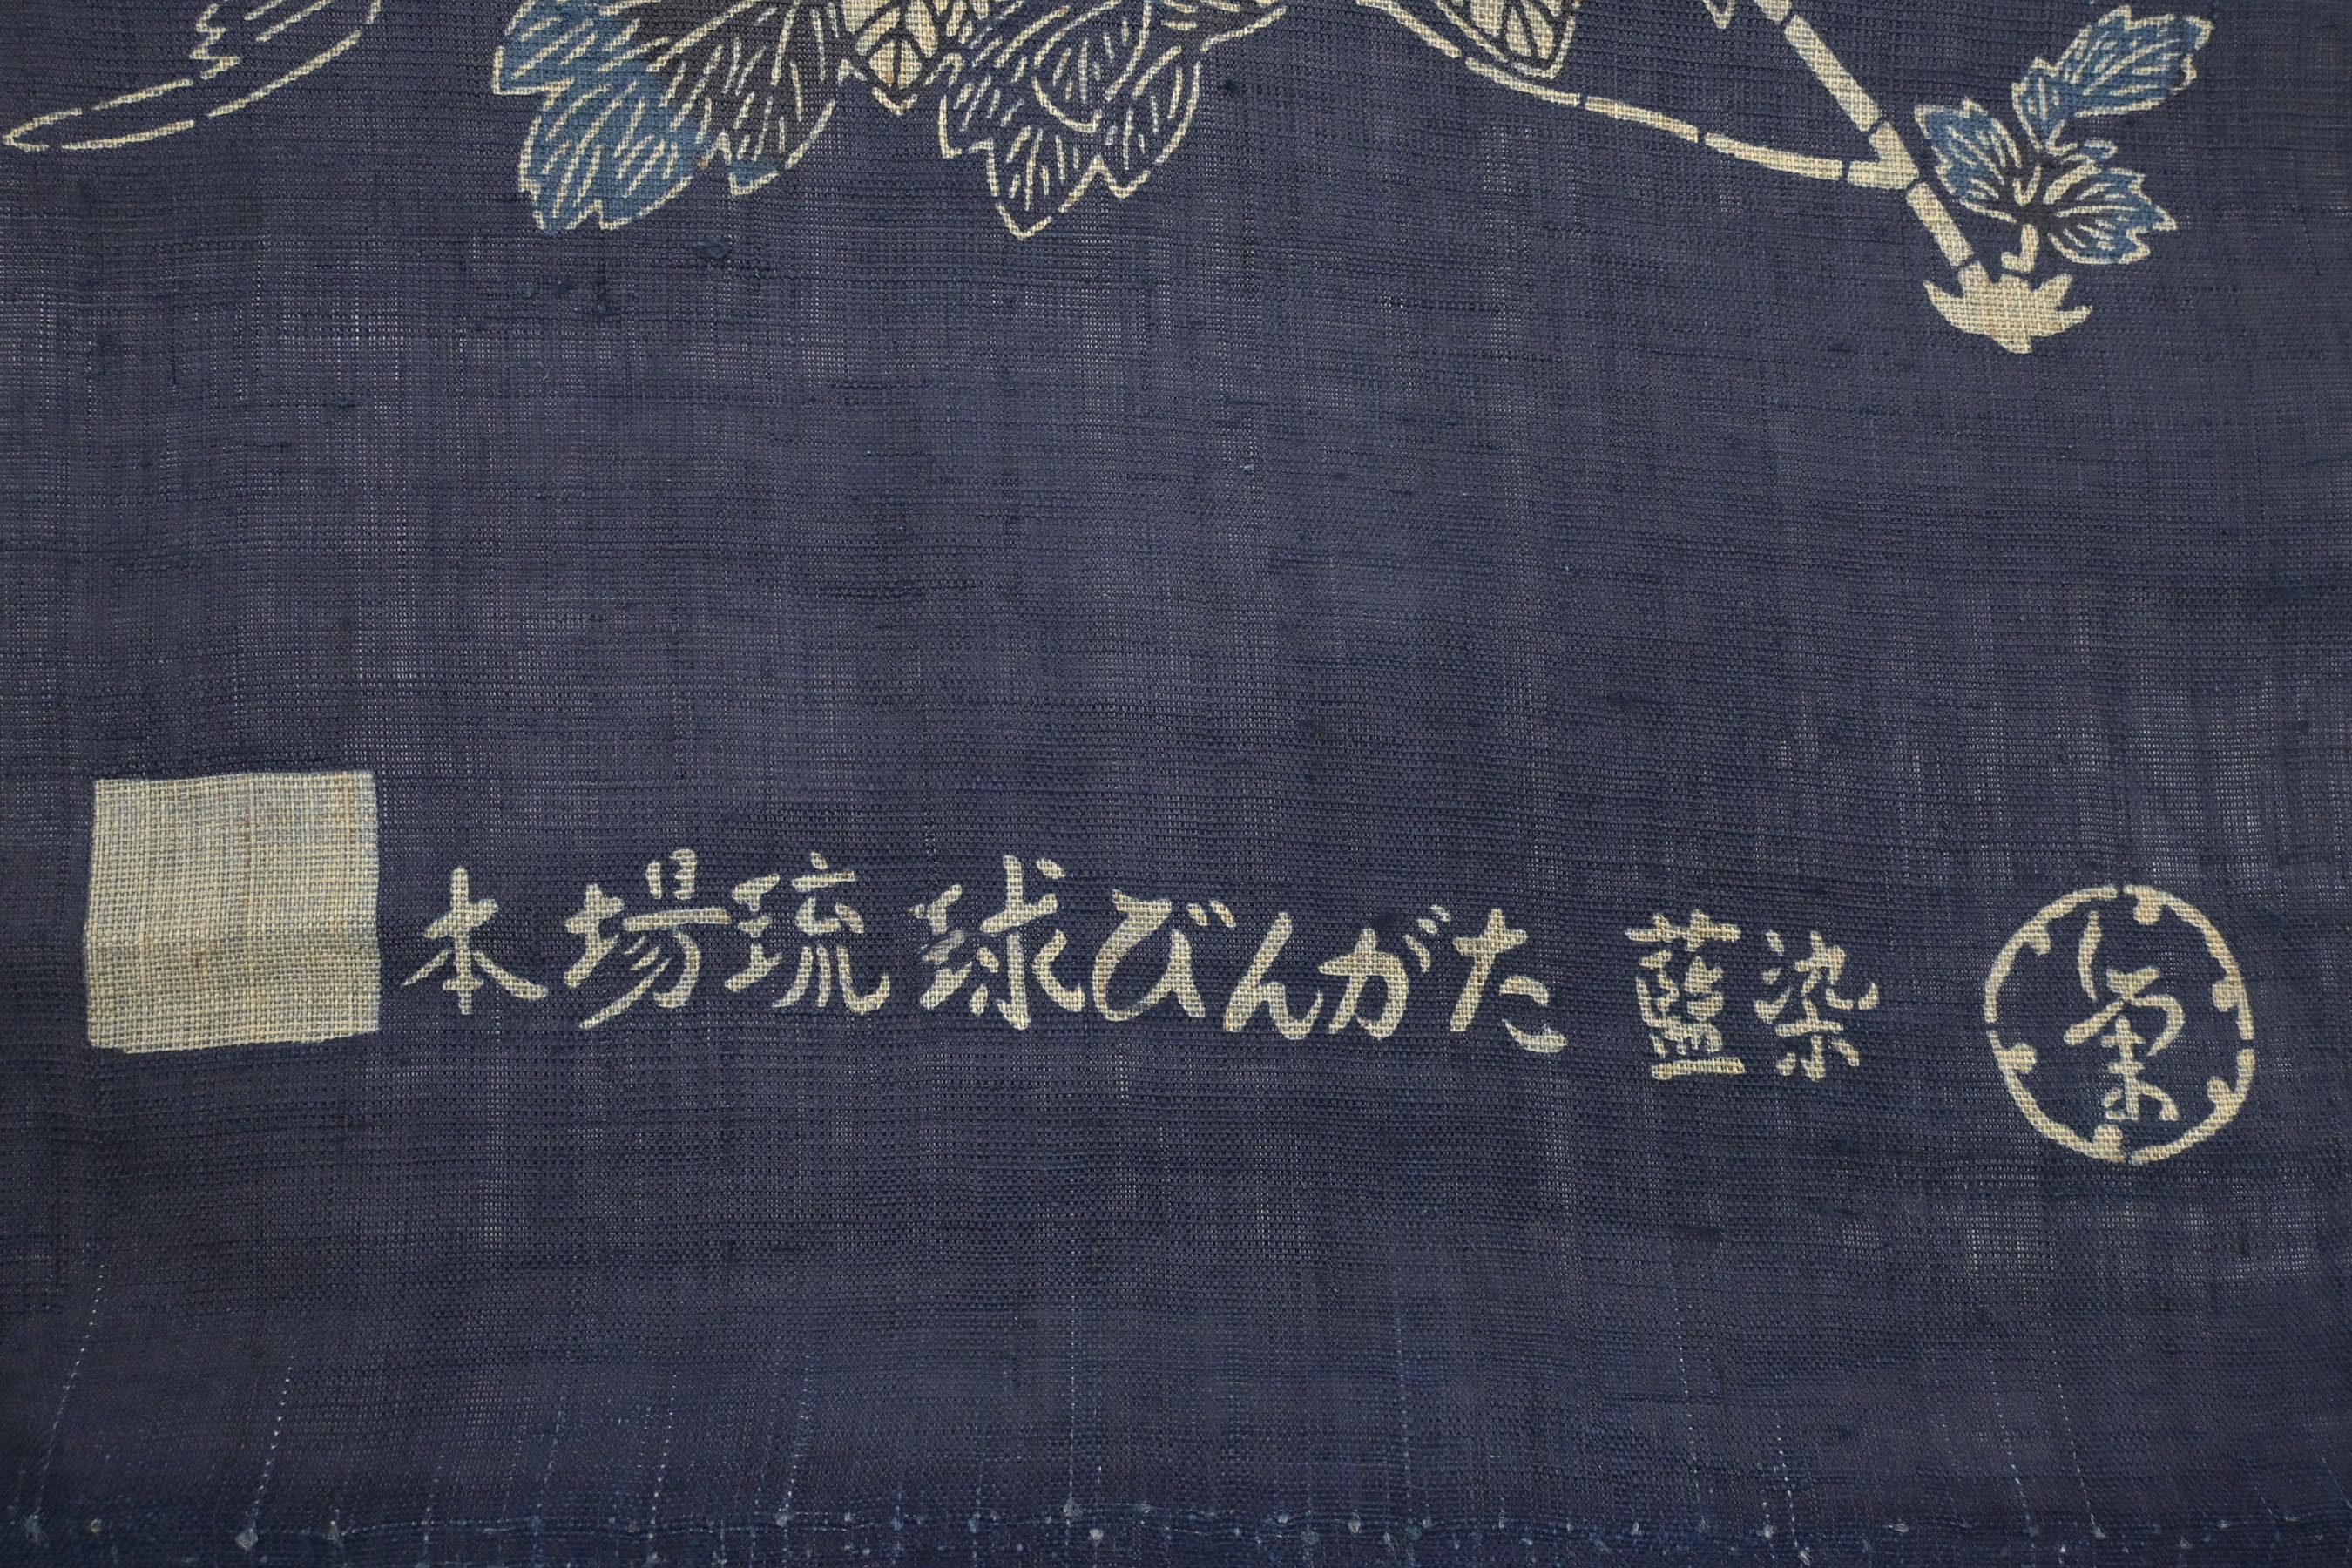 本場琉球びんがた 藍染